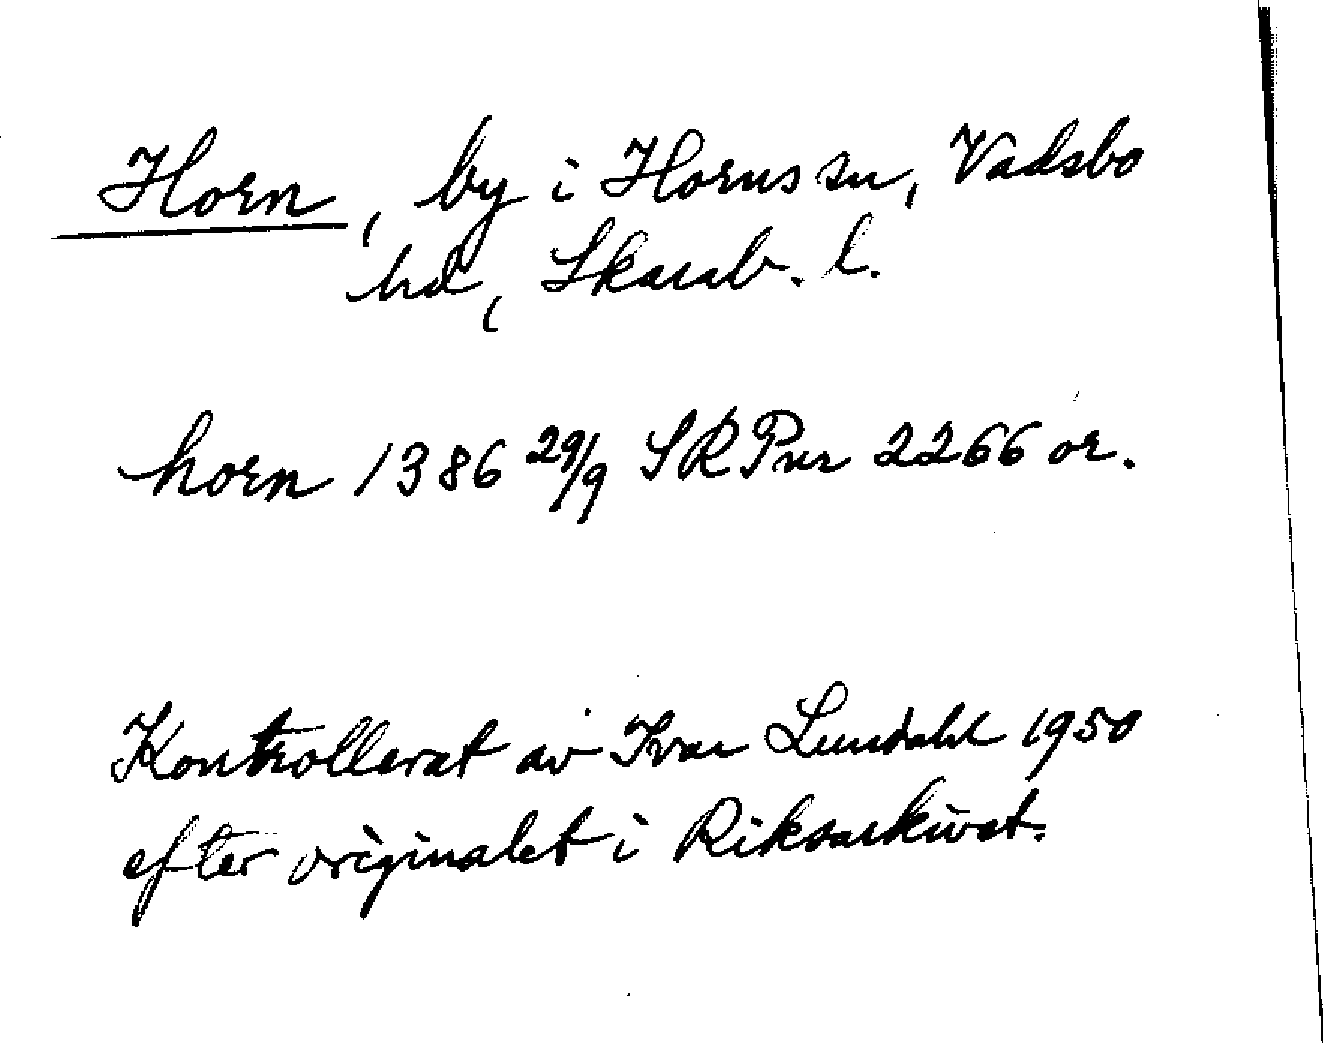 Horn, by i Horns sn, Vadsbo
hd, Skarab. l.
horn 1386 29/9 SRP nr 2266 or.
Kontrollerat av Ivar Lundahl 1950
efter originalet i Riksarkivet.